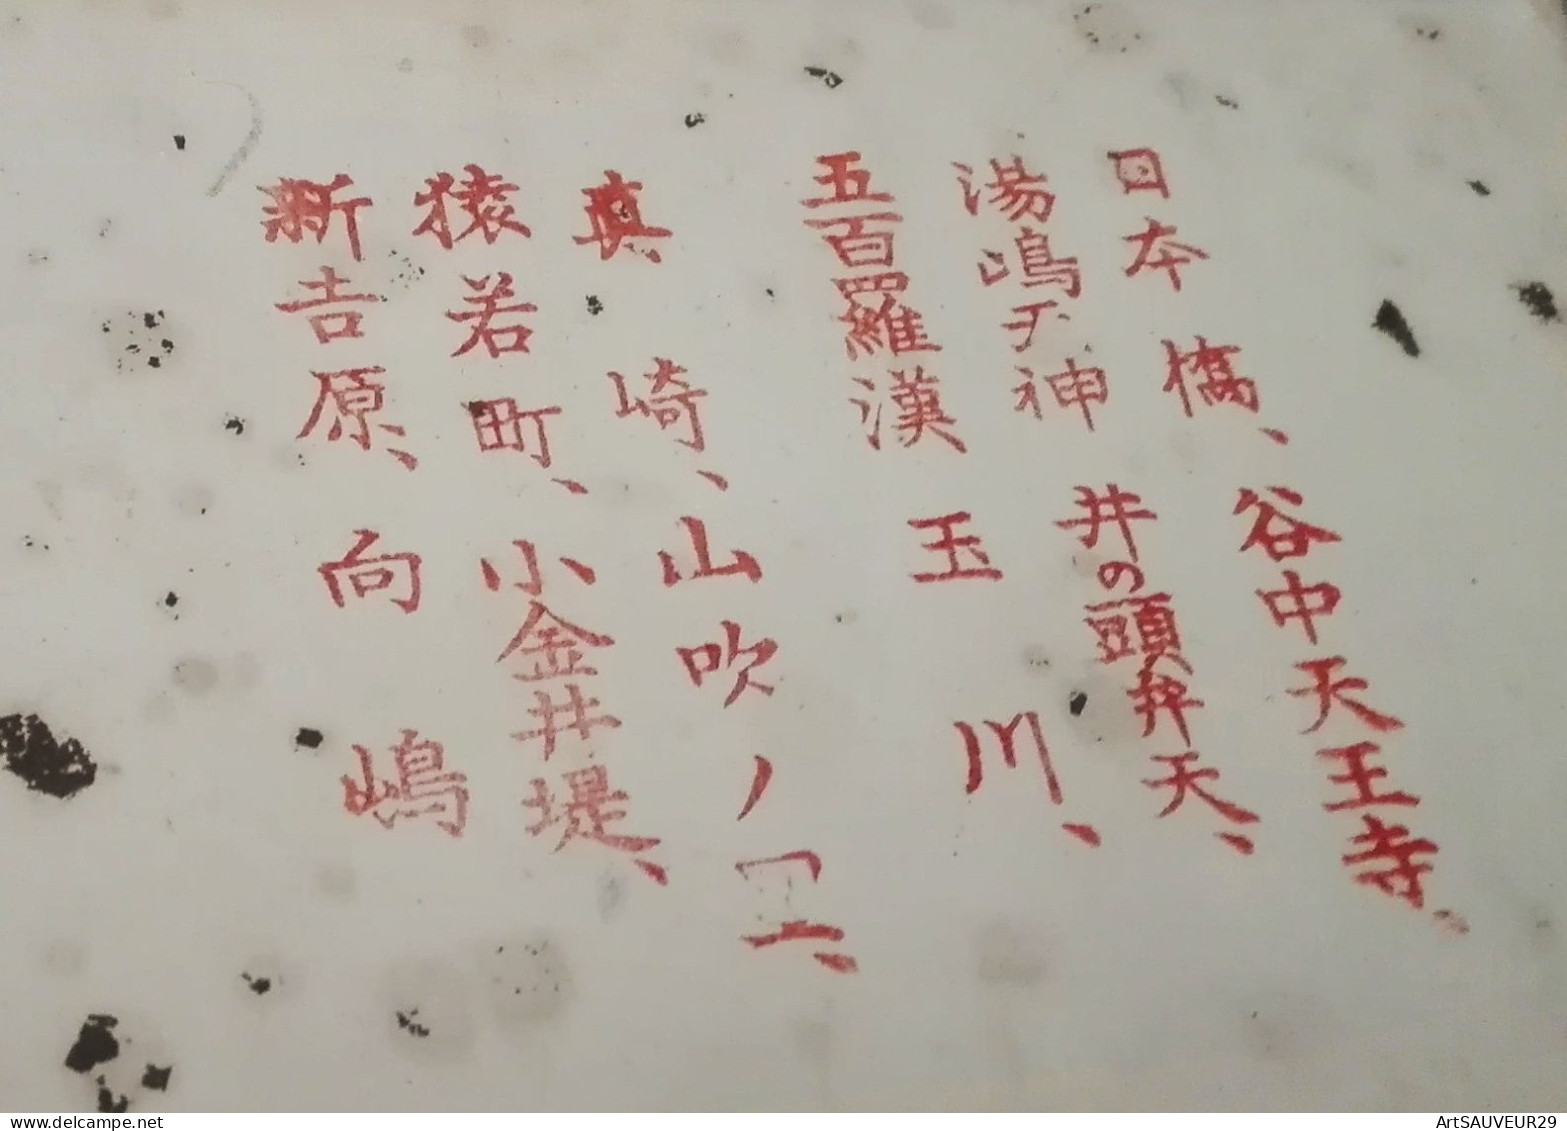 日本橋、谷中天王寺、
湯嶋天神井の頭弁天、
五百羅漢玉川、
真崎、山吹ノ
猿若町、小金井堤、
新吉原、向嶋
www.delcampe.net
ArtSAUVEUR29